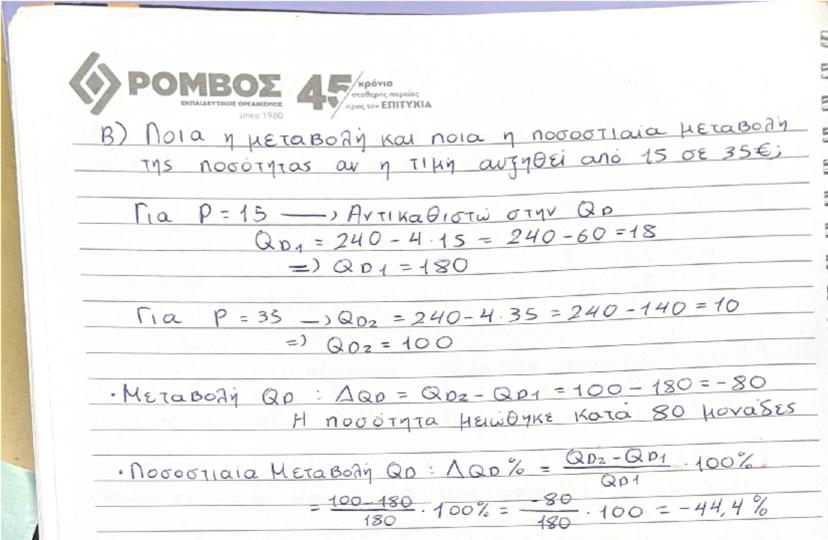 ΡΟΜΒΟΣ
ΕΚΠΑΙΔΕΥΤΙΚΟΣ ΟΡΓΑΝΙΣΜΟΣ
since 1980
45 χρόνια
σταθερής πορείας
προς την ΕΠΙΤΥΧΙΑ
Β) Ποια η μεταβολή και ποια η ποσοστιαία μεταβολή
της ποσότητας αν η τιμή αυξηθεί από 15 σε 35€;
Για P = 15 —> Αντικαθιστώ στην QD
QD1 = 240 - 4 · 15 = 240 - 60 = 18
=> QD1 = 180
Για P = 35 —> QD2 = 240 - 4 · 35 = 240 - 140 = 10
=> QD2 = 100
· Μεταβολή QD : ΔQD = QD2 - QD1 = 100 - 180 = -80
Η ποσότητα μειώθηκε κατά 80 μονάδες
· Ποσοστιαία Μεταβολή QD : ΔQD% = (QD2 - QD1)/QD1 · 100%
= (100 - 180)/180 · 100% = -80/180 · 100 = -44,4%